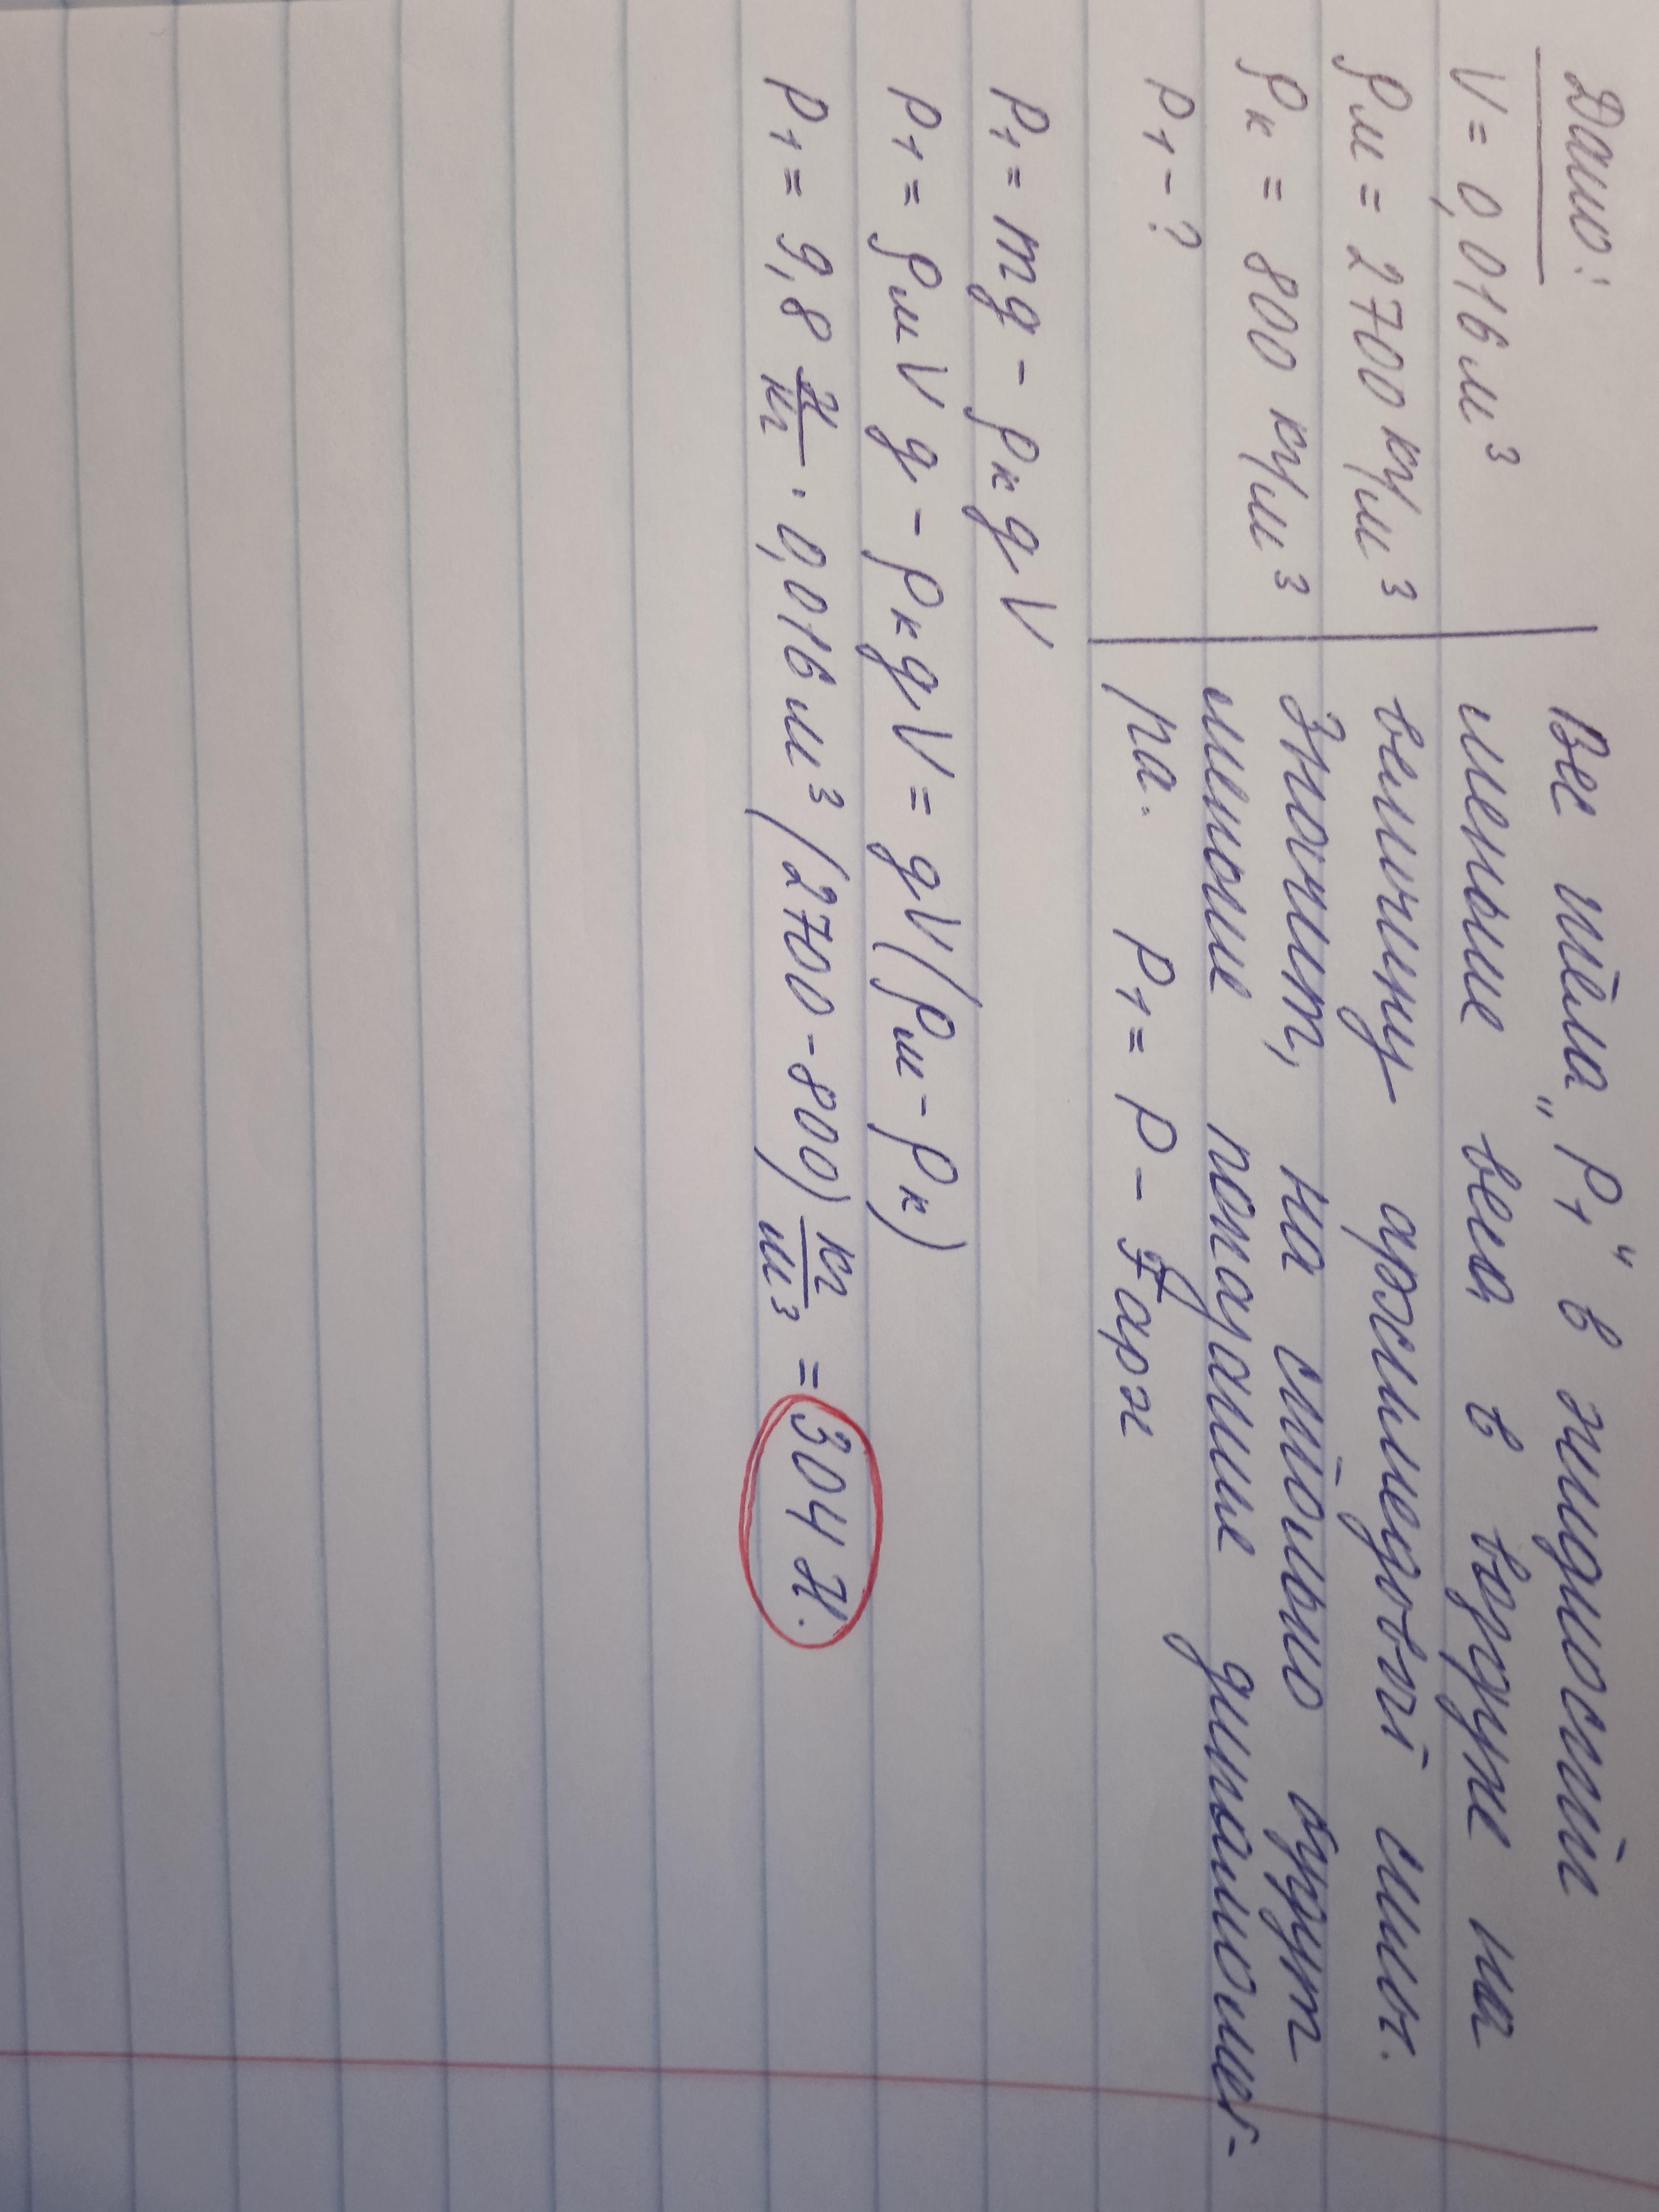 Дано:
V = 0,016 м³
ρм = 2700 кг/м³
ρк = 800 кг/м³
P₁ - ?
Вес тела „P₁“ в жидкости
меньше веса в воздухе на
величину архимедовой силы.
Значит, на столько будут
меньше показание динамомет-
ра. P₁ = P - Fарх
P₁ = mg - ρк g V
P₁ = ρм V g - ρк g V = g V (ρм - ρк)
P₁ = 9,8 Н/кг · 0,016 м³ (2700 - 800) кг/м³ = 304 Н.